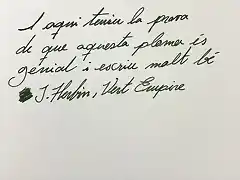 I aquí teniu la prova
de que aquesta ploma és
genial i escriu molt bé
J. Herbin, Vert Empire